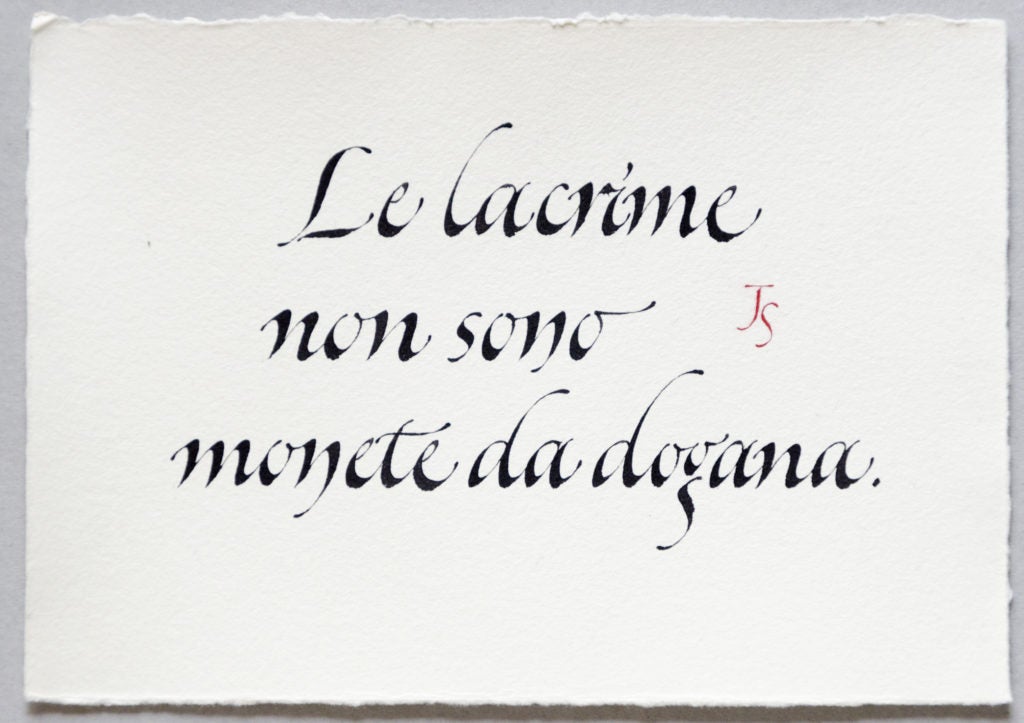 Le lacrime
non sono
JS
monete da dogana.